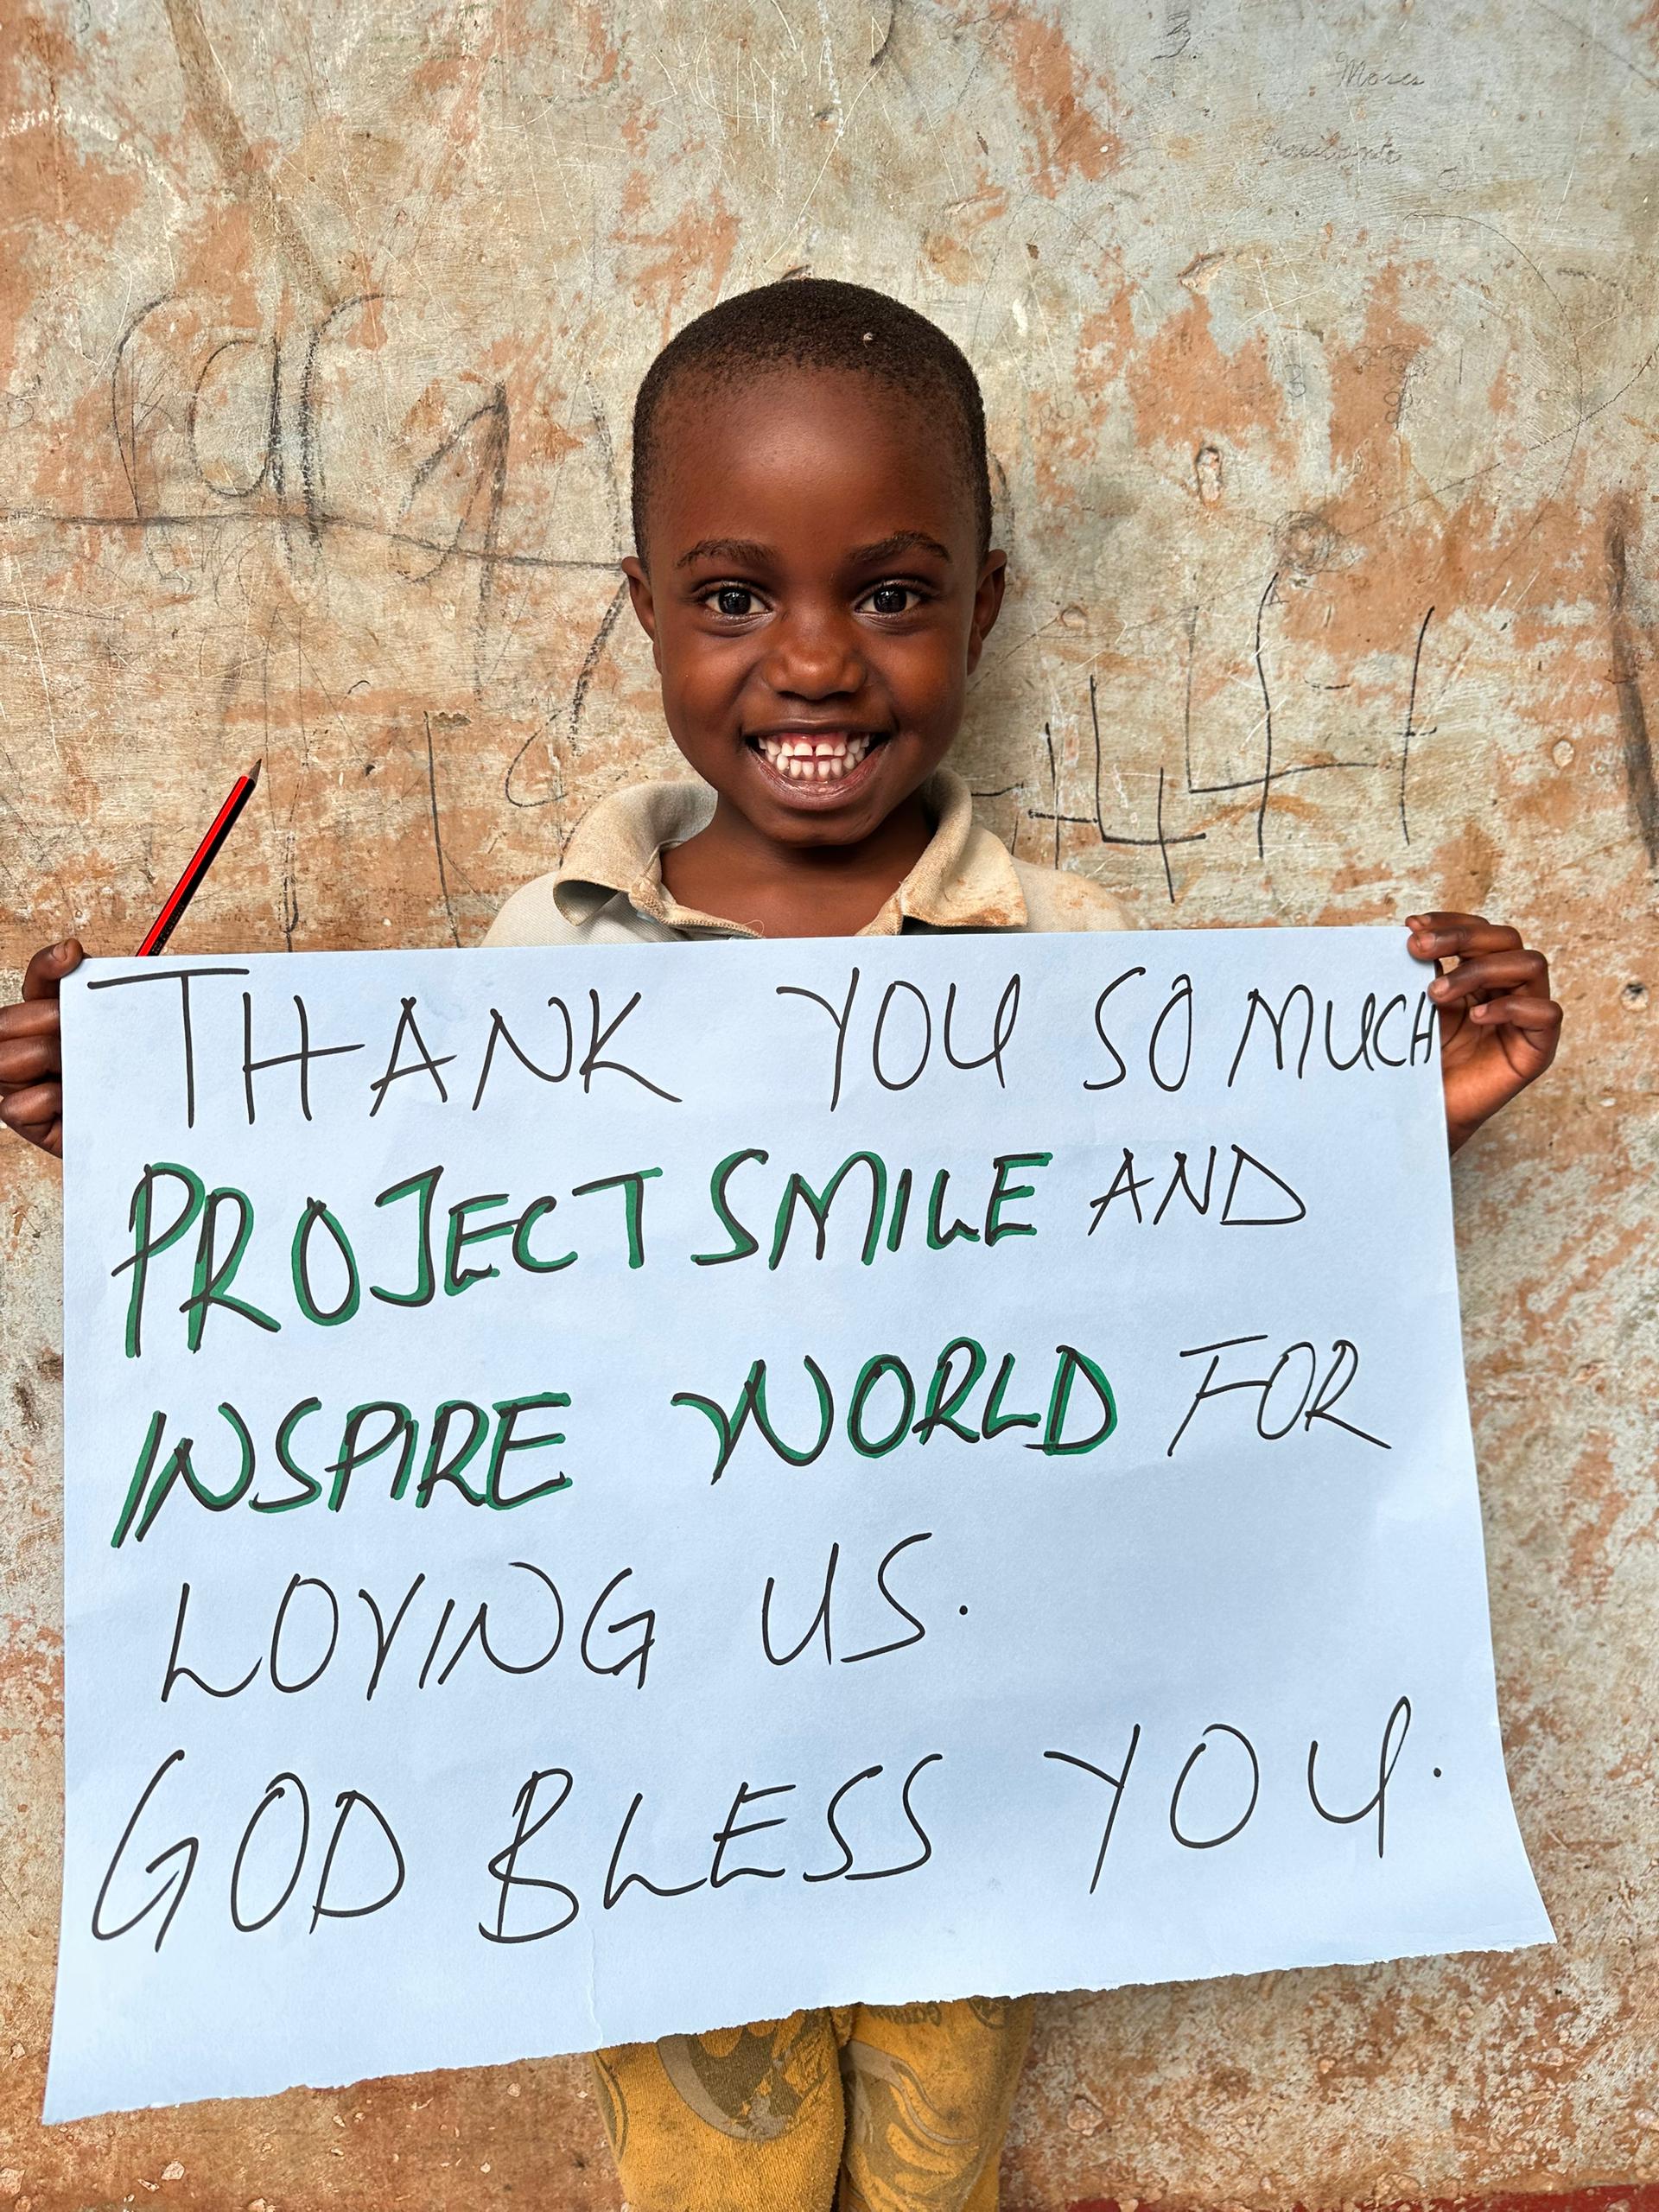 Moses
THANK YOU SO MUCH
PROJECT SMILE AND
INSPIRE WORLD FOR
LOVING US.
GOD BLESS YOU.